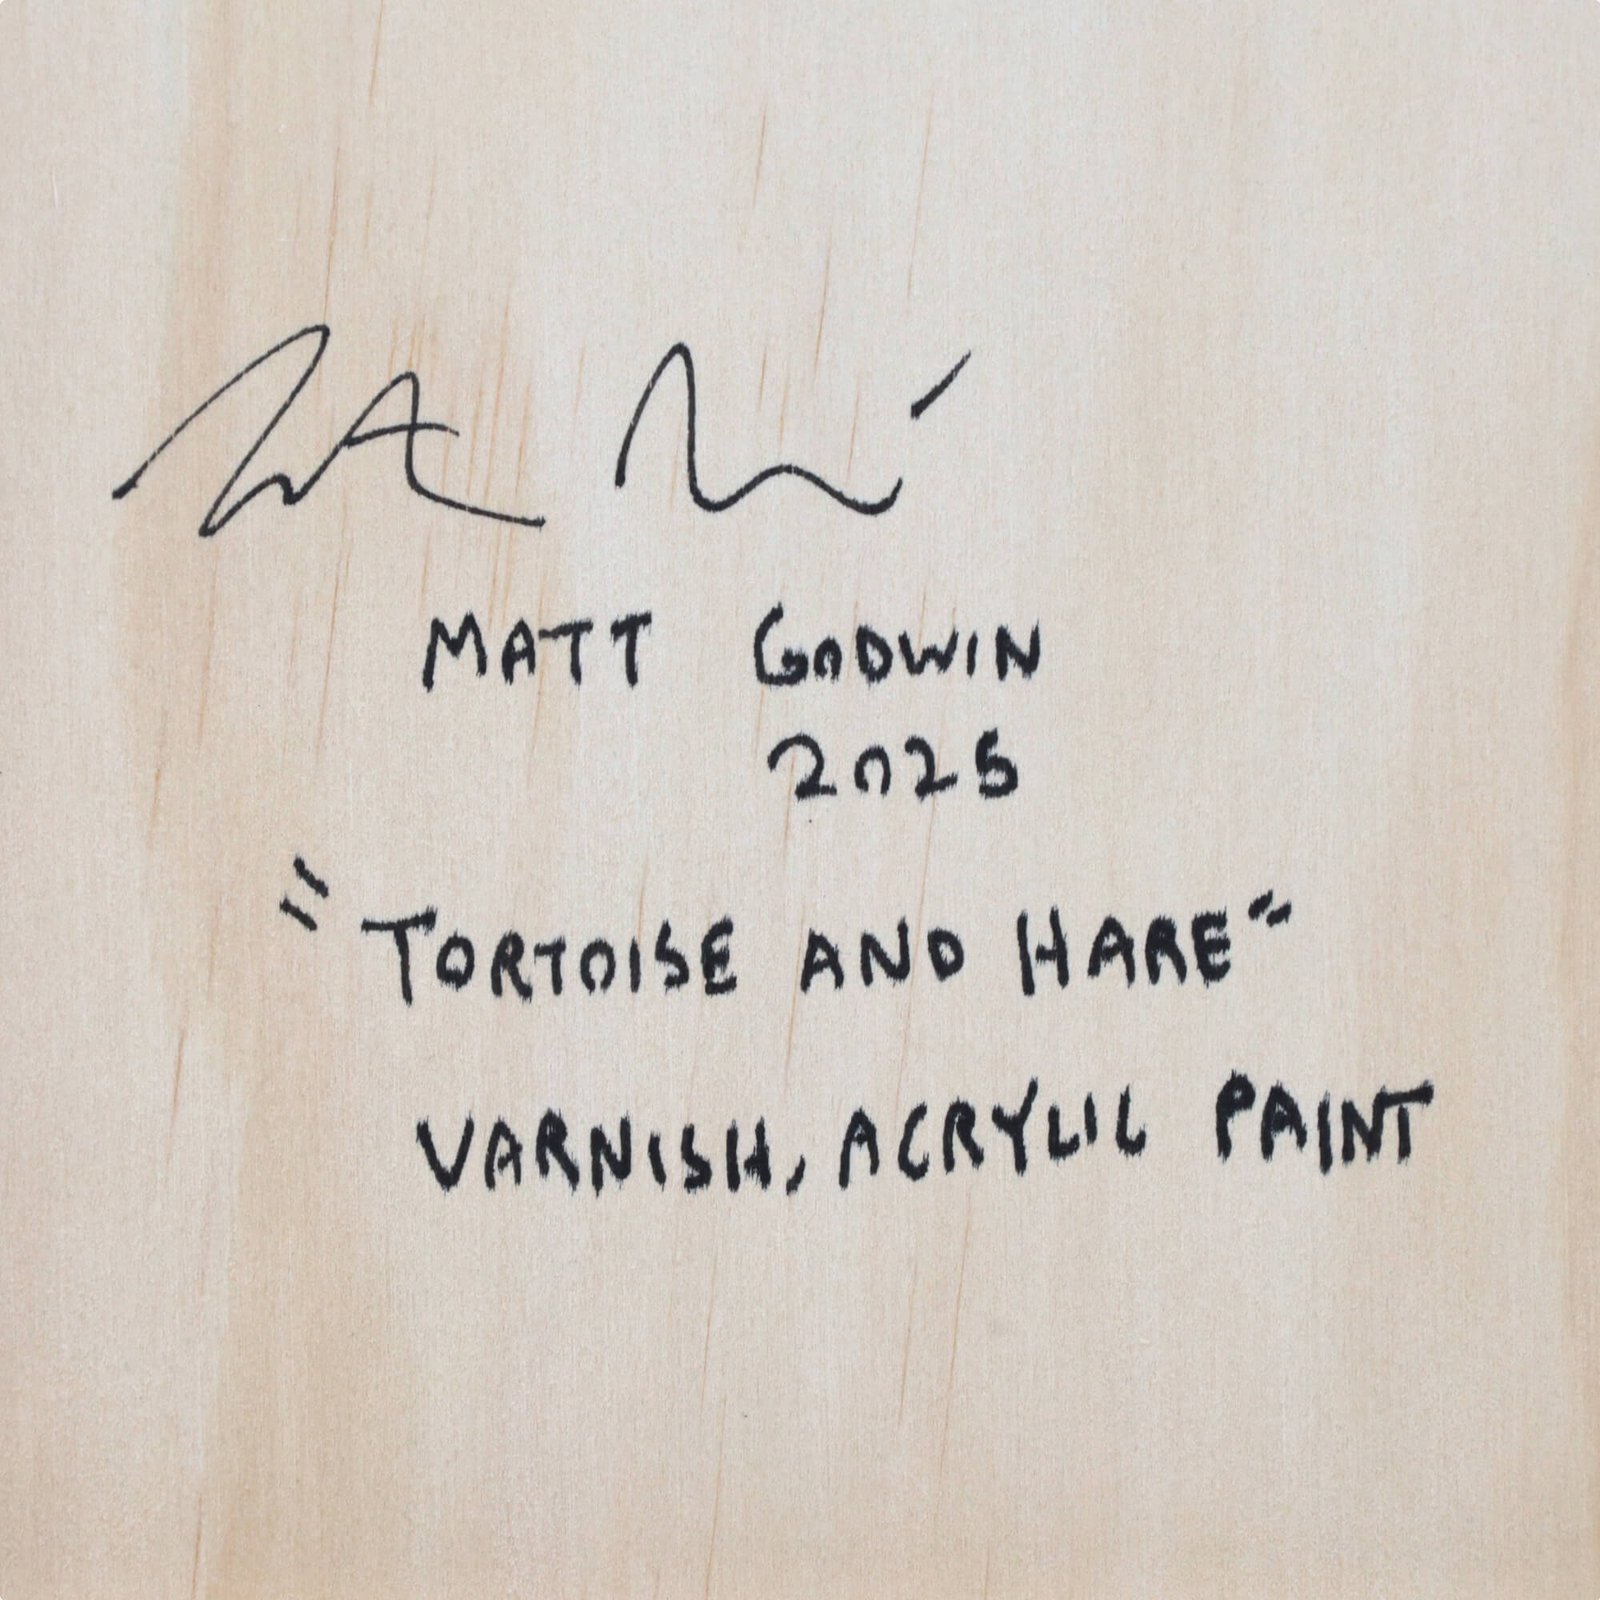 MATT GODWIN
2025
"TORTOISE AND HARE"
VARNISH, ACRYLIC PAINT